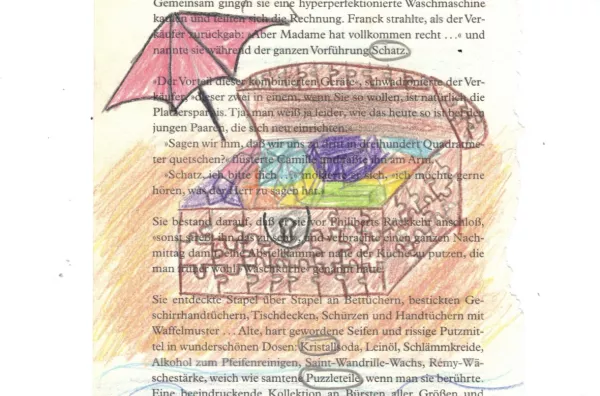 Gemeinsam gingen sie eine hyperperfektionierte Waschmaschine
kaufen und teilten sich die Rechnung. Franck strahlte, als der Ver-
käufer zurückgab: »Aber Madame hat vollkommen recht ...« und
nannte sie während der ganzen Vorführung Schatz.
»Der Vorteil dieser kombinierten Geräte«, schwadronierte der Ver-
käufer, »dieser zwei in einem, wenn Sie so wollen, ist natürlich die
Platzersparnis. Tja, man weiß ja leider, wie das heute so ist bei den
jungen Paaren, die sich neu einrichten.«
»Sagen wir ihm, daß wir uns zu dritt in dreihundert Quadratme-
ter quetschen?« flüsterte Camille und faßte ihn am Arm.
»Schatz, ich bitte dich ...« mokierte er sich, »ich möchte gerne
hören, was der Herr zu sagen hat.«
Sie bestand darauf, daß er sie vor Philiberts Rückkehr anschloß,
»sonst ihn das zu sehr«, und verbrachte einen ganzen Nach-
mittag damit, eine Abstellkammer nahe der Küche zu putzen, die
man früher wohl »Waschküche« genannt hätte.
Sie entdeckte Stapel über Stapel an Bettüchern, bestickten Ge-
schirrhandtüchern, Tischdecken, Schürzen und Handtüchern mit
Waffelmuster ... Alte, hart gewordene Seifen und rissige Putzmit-
tel in wunderschönen Dosen: Kristallsoda, Leinöl, Schlämmkreide,
Alkohol zum Pfeifenreinigen, Saint-Wandrille-Wachs, Rémy-Wä-
schestärke, weich wie samtene Puzzleteile, wenn man sie berührte.
Eine beeindruckende Kollektion an Bürsten aller Größen und